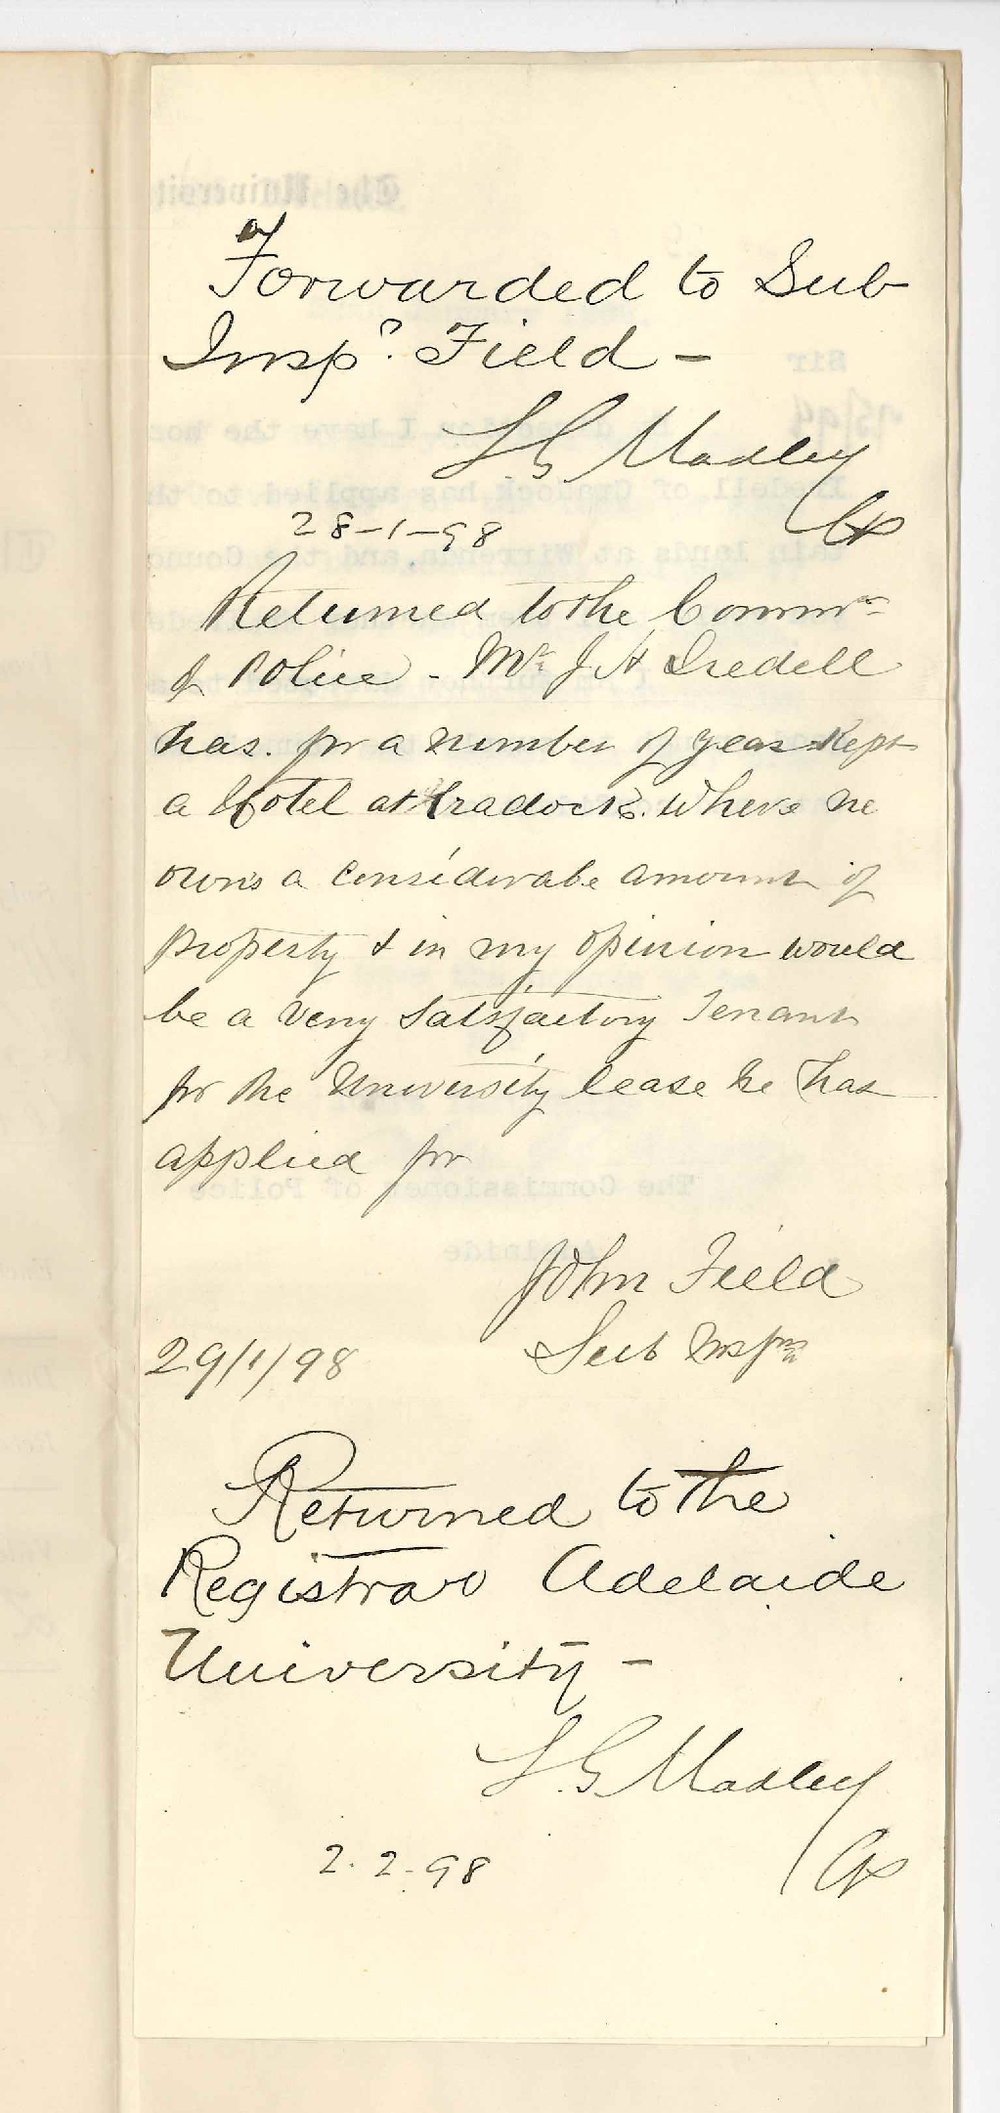 Forwarded to Sub
Inspr. Field -
L. G Madley
CP
28-1-98
Returned to the Commr
of Police - Mr J H Iredell
has. for a number of years Kept
a Hotel at Cradock. Where he
owns a considerabe amount of
property & in my opinion would
be a very Satisfactory Tenant
for the University lease he has
applied for
John Field
Sub Inspr
29/1/98
Returned to the
Registrar Adelaide
University -
L. G Madley
CP
2. 2-98